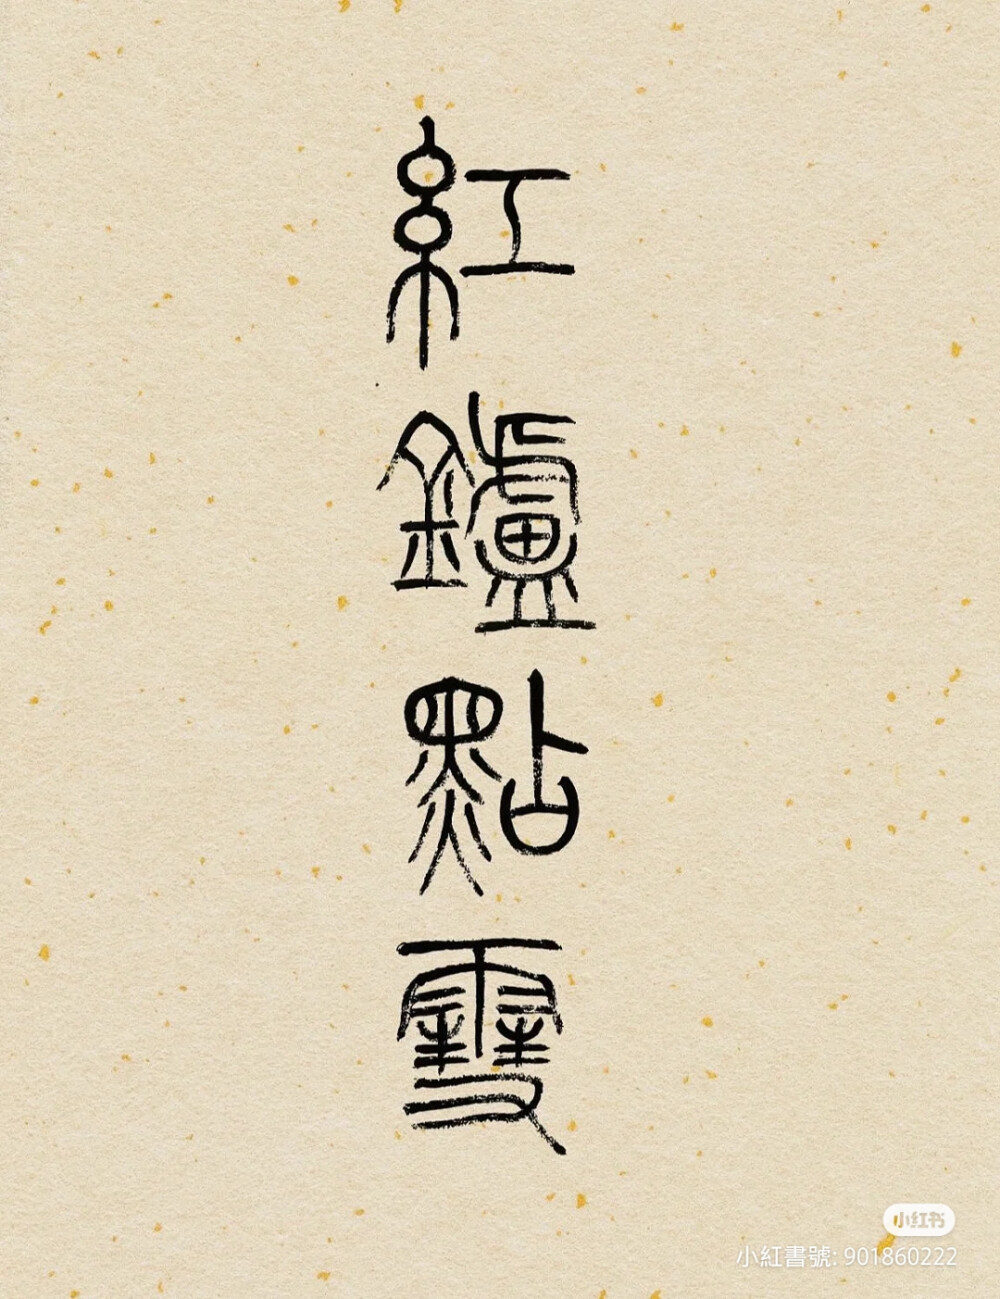 紅鑪點雪
小红书
小紅書號: 901860222